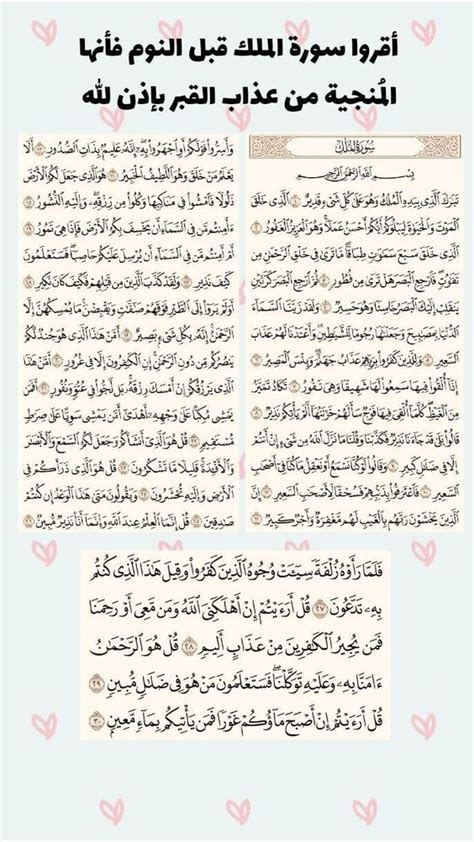 أقروا سورة الملك قبل النوم فأنها
المُنجية من عذاب القبر بإذن لله
سُورَةُ المُلْكِ
بِسْمِ ٱللَّهِ ٱلرَّحْمَٰنِ ٱلرَّحِيمِ
تَبَٰرَكَ ٱلَّذِى بِيَدِهِ ٱلْمُلْكُ وَهُوَ عَلَىٰ كُلِّ شَىْءٍ قَدِيرٌ ١ ٱلَّذِى خَلَقَ
ٱلْمَوْتَ وَٱلْحَيَوٰةَ لِيَبْلُوَكُمْ أَيُّكُمْ أَحْسَنُ عَمَلًا وَهُوَ ٱلْعَزِيزُ ٱلْغَفُورُ ٢
ٱلَّذِى خَلَقَ سَبْعَ سَمَٰوَٰتٍ طِبَاقًا مَّا تَرَىٰ فِى خَلْقِ ٱلرَّحْمَٰنِ مِن
تَفَٰوُتٍ فَٱرْجِعِ ٱلْبَصَرَ هَلْ تَرَىٰ مِن فُطُورٍ ٣ ثُمَّ ٱرْجِعِ ٱلْبَصَرَ كَرَّتَيْنِ
يَنقَلِبْ إِلَيْكَ ٱلْبَصَرُ خَاسِئًا وَهُوَ حَسِيرٌ ٤ وَلَقَدْ زَيَّنَّا ٱلسَّمَآءَ
ٱلدُّنْيَا بِمَصَٰبِيحَ وَجَعَلْنَٰهَا رُجُومًا لِّلشَّيَٰطِينِ وَأَعْتَدْنَا لَهُمْ عَذَابَ
ٱلسَّعِيرِ ٥ وَلِلَّذِينَ كَفَرُوا۟ بِرَبِّهِمْ عَذَابُ جَهَنَّمَ وَبِئْسَ ٱلْمَصِيرُ ٦
إِذَآ أُلْقُوا۟ فِيهَا سَمِعُوا۟ لَهَا شَهِيقًا وَهِىَ تَفُورُ ٧ تَكَادُ تَمَيَّزُ
مِنَ ٱلْغَيْظِ كُلَّمَآ أُلْقِىَ فِيهَا فَوْجٌ سَأَلَهُمْ خَزَنَتُهَآ أَلَمْ يَأْتِكُمْ نَذِيرٌ ٨
قَالُوا۟ بَلَىٰ قَدْ جَآءَنَا نَذِيرٌ فَكَذَّبْنَا وَقُلْنَا مَا نَزَّلَ ٱللَّهُ مِن شَىْءٍ إِنْ أَنتُمْ
إِلَّا فِى ضَلَٰلٍ كَبِيرٍ ٩ وَقَالُوا۟ لَوْ كُنَّا نَسْمَعُ أَوْ نَعْقِلُ مَا كُنَّا فِىٓ أَصْحَٰبِ
ٱلسَّعِيرِ ١٠ فَٱعْتَرَفُوا۟ بِذَنۢبِهِمْ فَسُحْقًا لِّأَصْحَٰبِ ٱلسَّعِيرِ ١١ إِنَّ
ٱلَّذِينَ يَخْشَوْنَ رَبَّهُم بِٱلْغَيْبِ لَهُم مَّغْفِرَةٌ وَأَجْرٌ كَبِيرٌ ١٢
وَأَسِرُّوا۟ قَوْلَكُمْ أَوِ ٱجْهَرُوا۟ بِهِۦٓ إِنَّهُۥ عَلِيمٌۢ بِذَاتِ ٱلصُّدُورِ ١٣ أَلَا
يَعْلَمُ مَنْ خَلَقَ وَهُوَ ٱللَّطِيفُ ٱلْخَبِيرُ ١٤ هُوَ ٱلَّذِى جَعَلَ لَكُمُ ٱلْأَرْضَ
ذَلُولًا فَٱمْشُوا۟ فِى مَنَاكِبِهَا وَكُلُوا۟ مِن رِّزْقِهِۦ وَإِلَيْهِ ٱلنُّشُورُ ١٥
ءَأَمِنتُم مَّن فِى ٱلسَّمَآءِ أَن يَخْسِفَ بِكُمُ ٱلْأَرْضَ فَإِذَا هِىَ تَمُورُ ١٦
أَمْ أَمِنتُم مَّن فِى ٱلسَّمَآءِ أَن يُرْسِلَ عَلَيْكُمْ حَاصِبًا فَسَتَعْلَمُونَ
كَيْفَ نَذِيرِ ١٧ وَلَقَدْ كَذَّبَ ٱلَّذِينَ مِن قَبْلِهِمْ فَكَيْفَ كَانَ نَكِيرِ ١٨
أَوَلَمْ يَرَوْا۟ إِلَى ٱلطَّيْرِ فَوْقَهُمْ صَٰٓفَّٰتٍ وَيَقْبِضْنَ مَا يُمْسِكُهُنَّ إِلَّا
ٱلرَّحْمَٰنُ إِنَّهُۥ بِكُلِّ شَىْءٍۭ بَصِيرٌ ١٩ أَمَّنْ هَٰذَا ٱلَّذِى هُوَ جُندٌ لَّكُمْ
يَنصُرُكُم مِّن دُونِ ٱلرَّحْمَٰنِ إِنِ ٱلْكَٰفِرُونَ إِلَّا فِى غُرُورٍ ٢٠ أَمَّنْ هَٰذَا
ٱلَّذِى يَرْزُقُكُمْ إِنْ أَمْسَكَ رِزْقَهُۥ بَل لَّجُّوا۟ فِى عُتُوٍّ وَنُفُورٍ ٢١ أَفَمَن
يَمْشِى مُكِبًّا عَلَىٰ وَجْهِهِۦٓ أَهْدَىٰٓ أَمَّن يَمْشِى سَوِيًّا عَلَىٰ صِرَٰطٍ
مُّسْتَقِيمٍ ٢٢ قُلْ هُوَ ٱلَّذِىٓ أَنشَأَكُمْ وَجَعَلَ لَكُمُ ٱلسَّمْعَ وَٱلْأَبْصَٰرَ
وَٱلْأَفْـِٔدَةَ قَلِيلًا مَّا تَشْكُرُونَ ٢٣ قُلْ هُوَ ٱلَّذِى ذَرَأَكُمْ فِى
ٱلْأَرْضِ وَإِلَيْهِ تُحْشَرُونَ ٢٤ وَيَقُولُونَ مَتَىٰ هَٰذَا ٱلْوَعْدُ إِن كُنتُمْ
صَٰدِقِينَ ٢٥ قُلْ إِنَّمَا ٱلْعِلْمُ عِندَ ٱللَّهِ وَإِنَّمَآ أَنَا۠ نَذِيرٌ مُّبِينٌ ٢٦
فَلَمَّا رَأَوْهُ زُلْفَةً سِيٓـَٔتْ وُجُوهُ ٱلَّذِينَ كَفَرُوا۟ وَقِيلَ هَٰذَا ٱلَّذِى كُنتُم
بِهِۦ تَدَّعُونَ ٢٧ قُلْ أَرَءَيْتُمْ إِنْ أَهْلَكَنِىَ ٱللَّهُ وَمَن مَّعِىَ أَوْ رَحِمَنَا
فَمَن يُجِيرُ ٱلْكَٰفِرِينَ مِنْ عَذَابٍ أَلِيمٍ ٢٨ قُلْ هُوَ ٱلرَّحْمَٰنُ
ءَامَنَّا بِهِۦ وَعَلَيْهِ تَوَكَّلْنَا فَسَتَعْلَمُونَ مَنْ هُوَ فِى ضَلَٰلٍ مُّبِينٍ ٢٩
قُلْ أَرَءَيْتُمْ إِنْ أَصْبَحَ مَآؤُكُمْ غَوْرًا فَمَن يَأْتِيكُم بِمَآءٍ مَّعِينٍۭ ٣٠